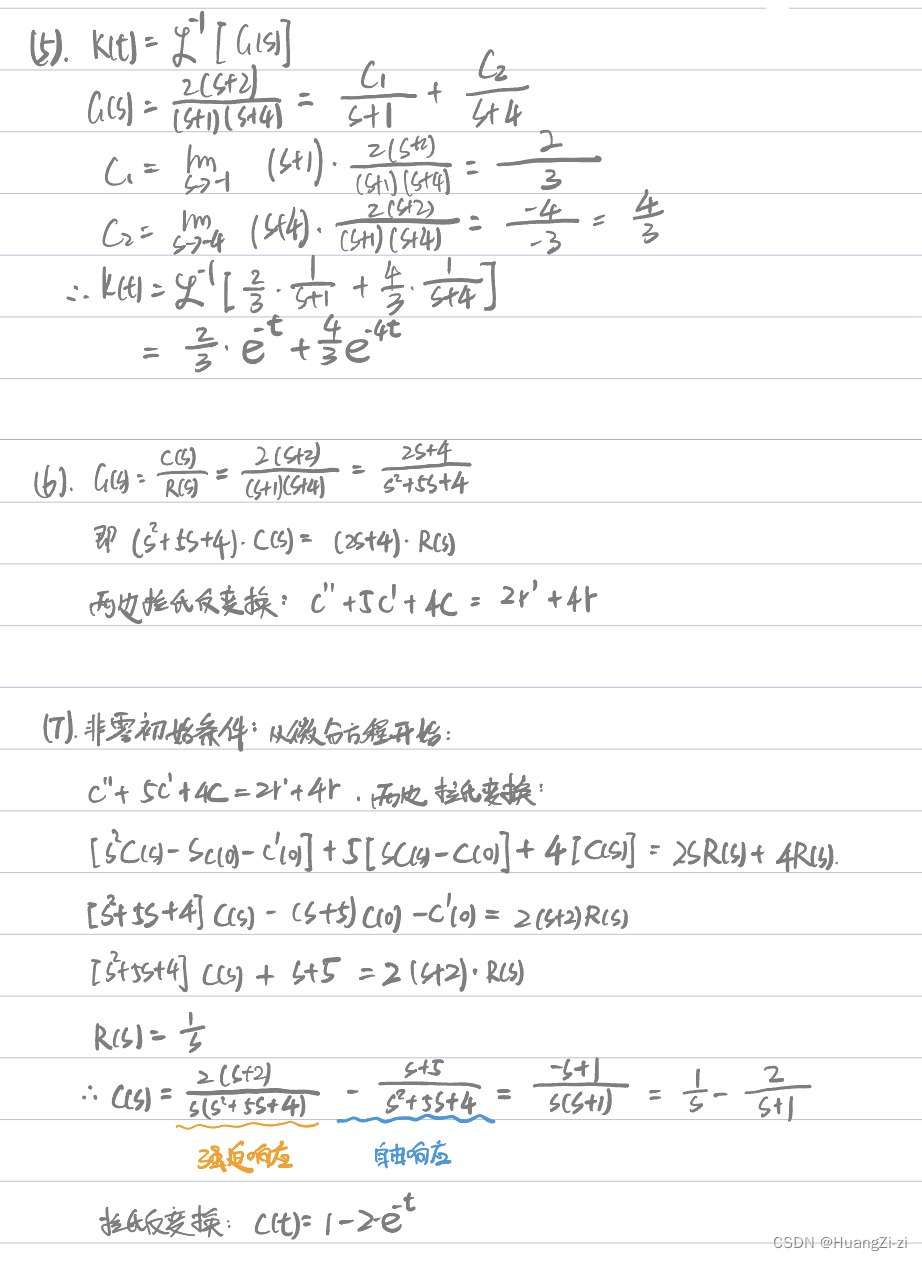 (5). K(t) = ℒ⁻¹[G(s)]
G(s) = 2(s+2)/((s+1)(s+4)) = C₁/(s+1) + C₂/(s+4)
C₁ = lim s→-1 (s+1)·2(s+2)/((s+1)(s+4)) = 2/3
C₂ = lim s→-4 (s+4)·2(s+2)/((s+1)(s+4)) = -4/-3 = 4/3
∴ K(t) = ℒ⁻¹[2/3·1/(s+1) + 4/3·1/(s+4)]
= 2/3·e^-t + 4/3 e^-4t
(6). G(s) = C(s)/R(s) = 2(s+2)/((s+1)(s+4)) = (2s+4)/(s²+5s+4)
即 (s²+5s+4)·C(s) = (2s+4)·R(s)
两边拉氏反变换: c''+5c'+4c = 2r'+4r
(7). 非零初始条件: 从微分方程开始:
c''+5c'+4c = 2r'+4r. 两边拉氏变换:
[s²C(s)-sc(0)-c'(0)]+5[sC(s)-C(0)]+4[C(s)] = 2sR(s)+4R(s).
[s²+5s+4]C(s)-(s+5)C(0)-C'(0) = 2(s+2)R(s)
[s²+5s+4]C(s)+s+5 = 2(s+2)·R(s)
R(s) = 1/s
∴ C(s) = 2(s+2)/(s(s²+5s+4)) - (s+5)/(s²+5s+4) = (-s+1)/(s(s+1)) = 1/s - 2/(s+1)
强迫响应 自由响应
拉氏反变换: C(t) = 1-2·e^-t
CSDN @HuangZi-zi